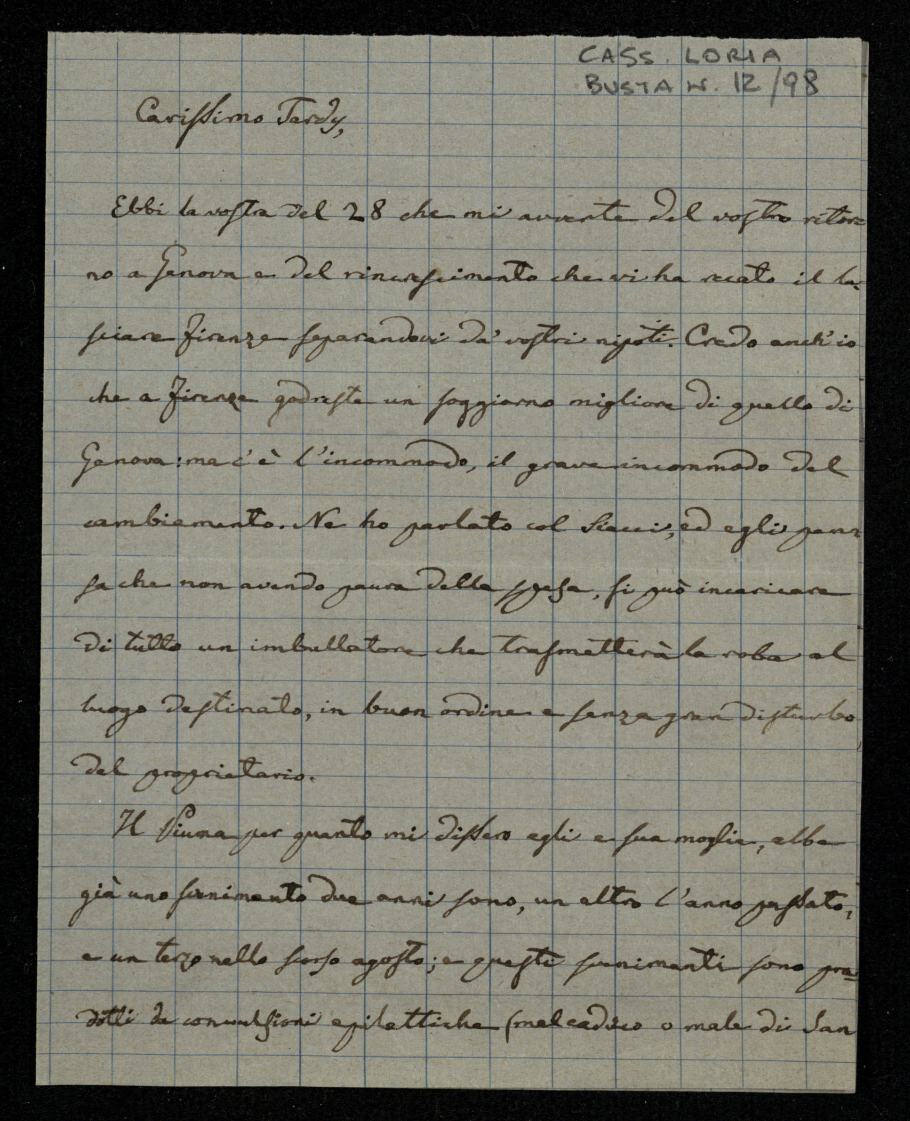 CASS. LORIA
BUSTA N. 12/98
Carissimo Tardy,
Ebbi la vostra del 28 che mi avverte del vostro ritor=
no a Genova e del rincrescimento che vi ha recato il la-
sciare Firenze separandovi da' vostri nipoti. Credo anch'io
che a Firenze godreste un soggiorno migliore di quello di
Genova: ma c'è l'incommodo, il grave incommodo del
cambiamento. Ne ho parlato col Siacci, ed egli pen=
sa che non avendo paura della spesa, si può incaricare
di tutto un imballatore che trasmetterà la roba al
luogo destinato, in buon ordine e senza gran disturbo
del proprietario.
Il Piuma per quanto mi dissero egli e sua moglie, ebbe
già uno svenimento due anni sono, un altro l'anno passato,
e un terzo nello scorso agosto; e questi svenimenti sono pro=
dotti da convulsioni epilettiche (mal caduco o male di San